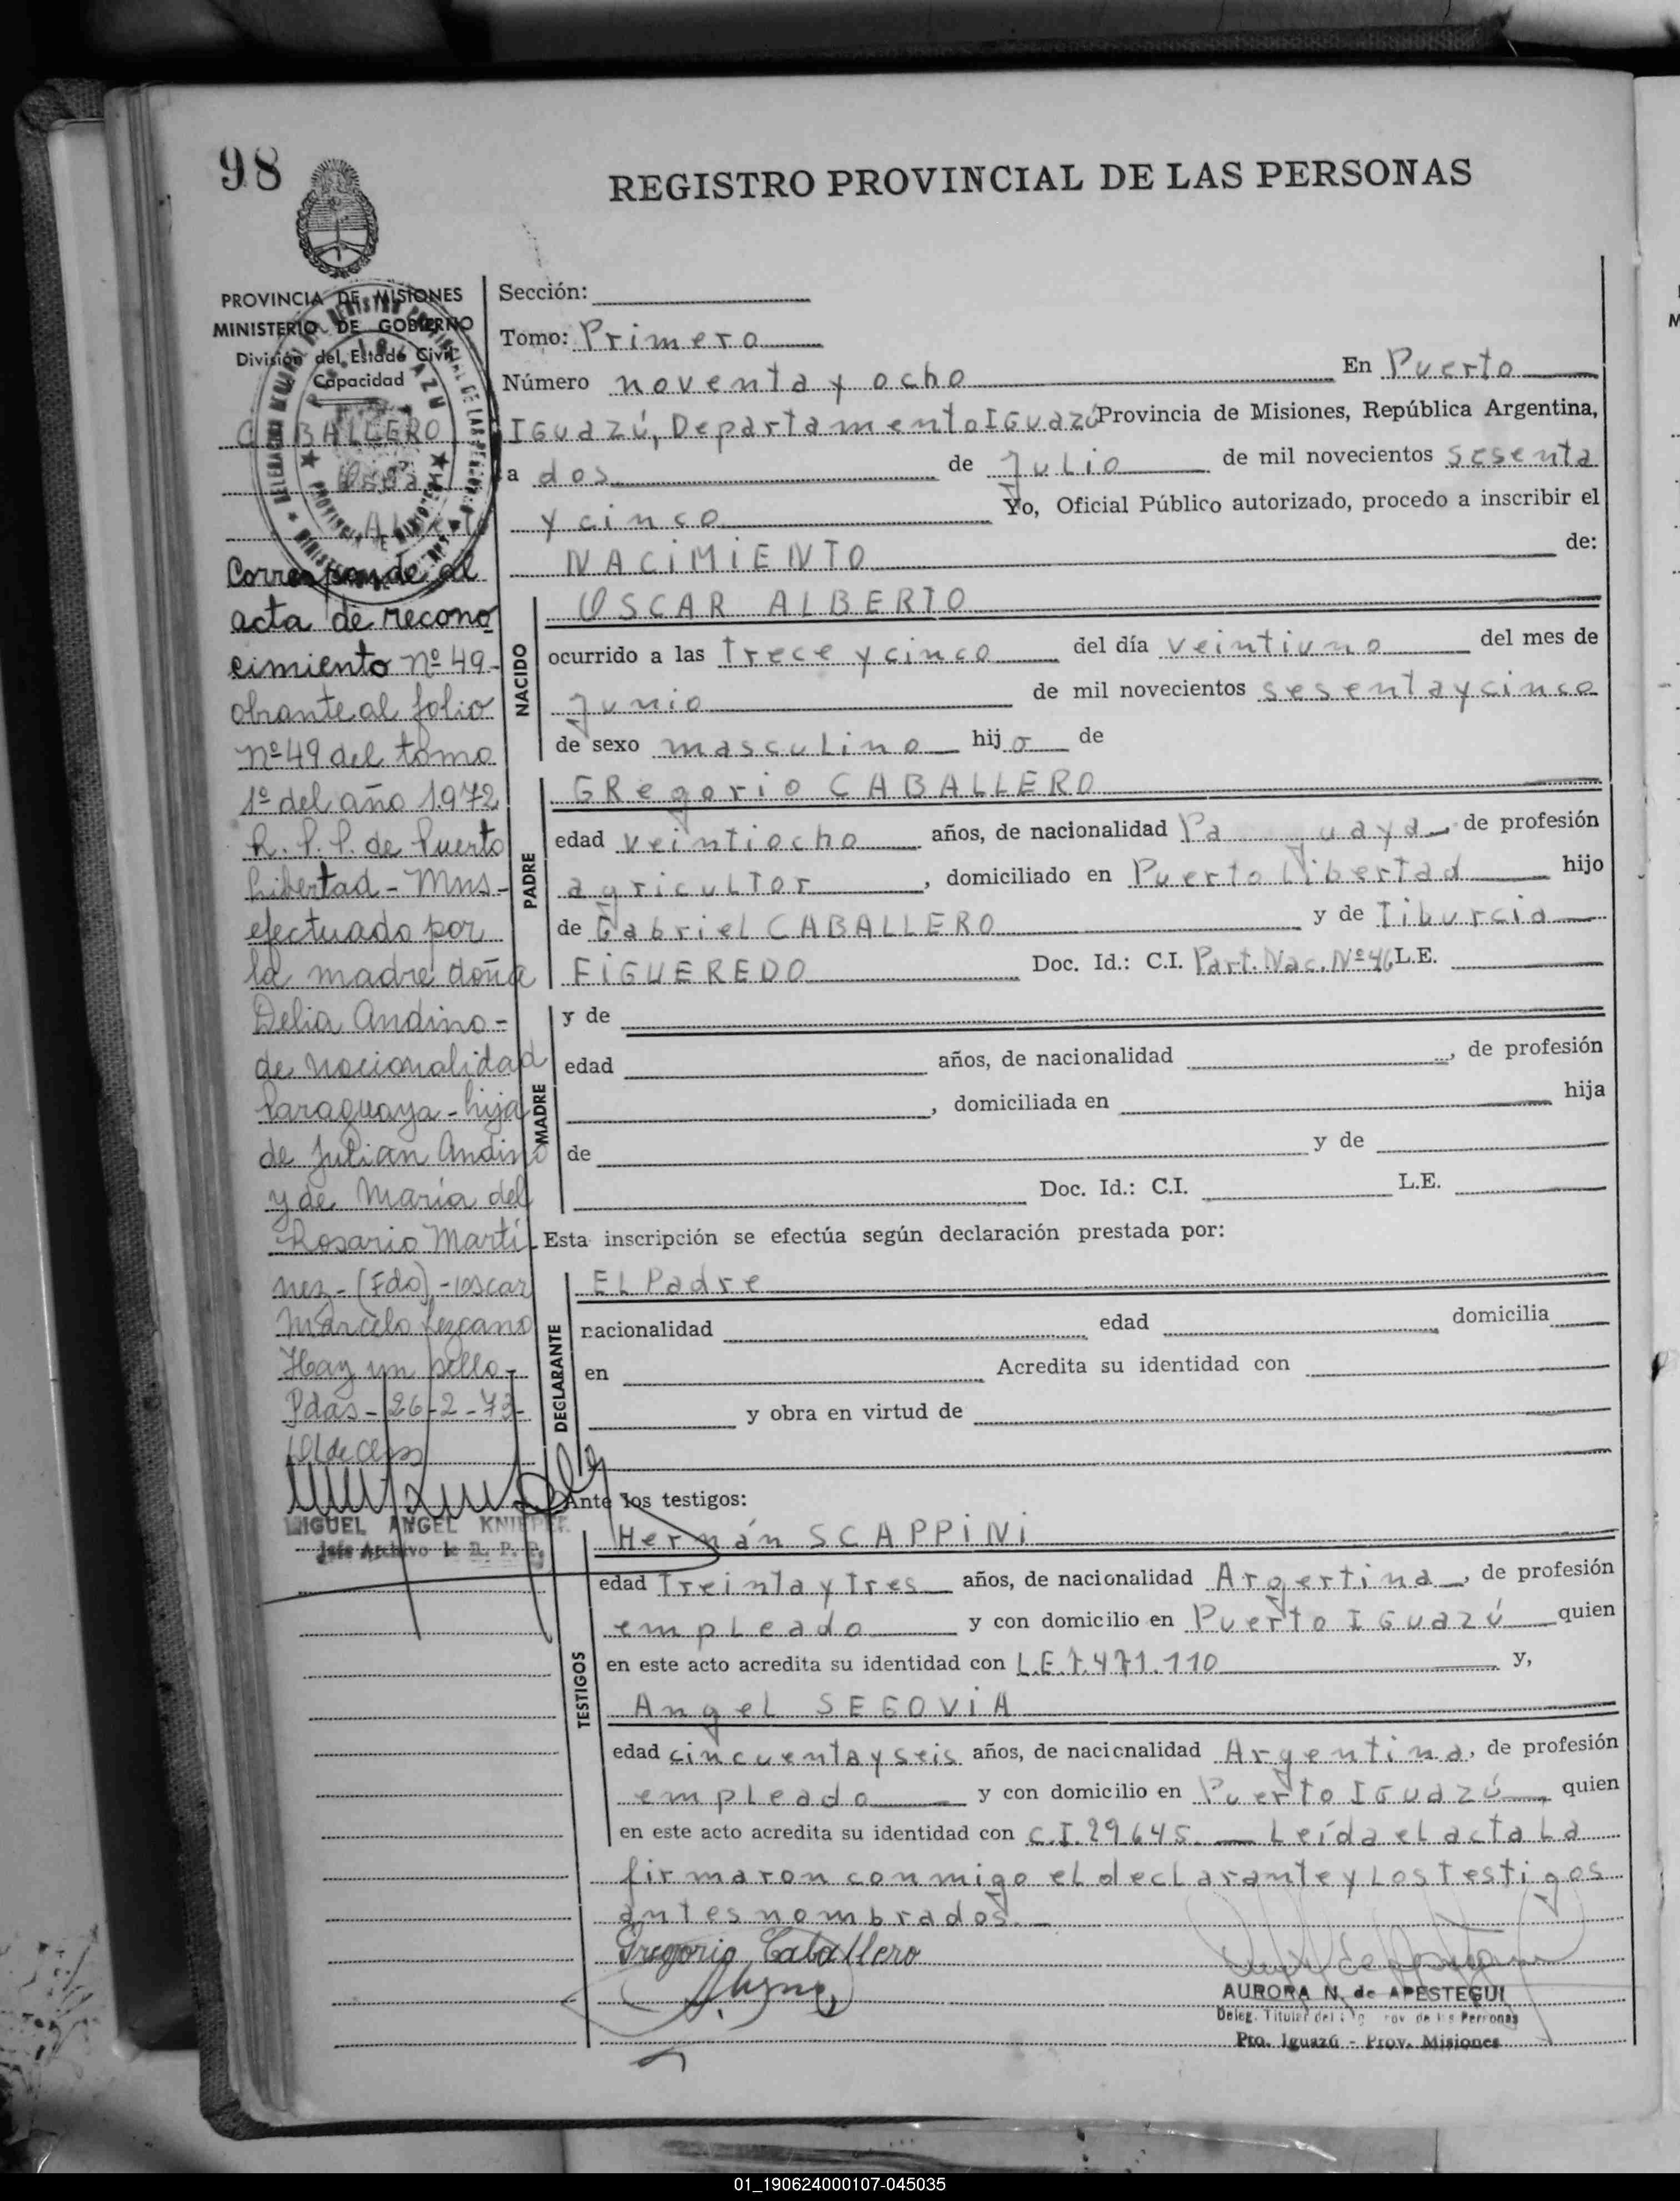 98
REGISTRO PROVINCIAL DE LAS PERSONAS
PROVINCIA DE MISIONES
MINISTERIO DE GOBIERNO
División del Estado Civil
Capacidad
CABALLERO
Corresponde al
acta de recono
cimiento nº 49-
obrante al folio
nº 49 del tomo
1º del año 1972
R. P. P. de Puerto
Libertad - Mns-
efectuado por
la madre doña
Delia Andino-
de nacionalidad
Paraguaya - hija
de Julian Andino
y de Maria del
Rosario Marti
nez - (Fdo) - Oscar
Marcelo Lezcano
Hay un sello-
Pdas - 26-2-73-
MIGUEL ANGEL
Jefe Archivo de R. P. P.
Sección:
Tomo: Primero
Número noventa y ocho En Puerto
IGuazú, Departamento IGuazú Provincia de Misiones, República Argentina,
a dos de Julio de mil novecientos sesenta
y cinco Yo, Oficial Público autorizado, procedo a inscribir el
NACIMIENTO de:
NACIDO
OSCAR ALBERTO
ocurrido a las Trece y cinco del día veintiuno del mes de
Junio de mil novecientos sesenta y cinco
de sexo masculino hijo de
PADRE
GRegorio CABALLERO
edad veintiocho años, de nacionalidad Pa guaya, de profesión
agricultor, domiciliado en Puerto Libertad hijo
de Gabriel CABALLERO y de Tiburcia
FIGUEREDO Doc. Id.: C.I. Part. Nac. Nº 46 L.E.
MADRE
y de
edad años, de nacionalidad , de profesión
, domiciliada en hija
de y de
Doc. Id.: C.I. L.E.
Esta inscripción se efectúa según declaración prestada por:
DECLARANTE
EL Padre
nacionalidad edad domicilia
en Acredita su identidad con
y obra en virtud de
Ante los testigos:
TESTIGOS
Hernán SCAPPINI
edad Treinta y Tres años, de nacionalidad Argertina, de profesión
empleado y con domicilio en Puerto IGuazú quien
en este acto acredita su identidad con L.E. 7.471.110 y,
Angel SEGOVIA
edad cincuenta y seis años, de nacionalidad Argentina, de profesión
empleado y con domicilio en Puerto IGuazú, quien
en este acto acredita su identidad con C.I. 29645. Leída el acta La
firmaron conmigo el declarante y Los Testigos
antes nombrados.
Gregorio Caballero
AURORA N. de APESTEGUI
Deleg. Titular del de las Personas
Pto. Iguazú - Prov. Misiones
01_190624000107-045035